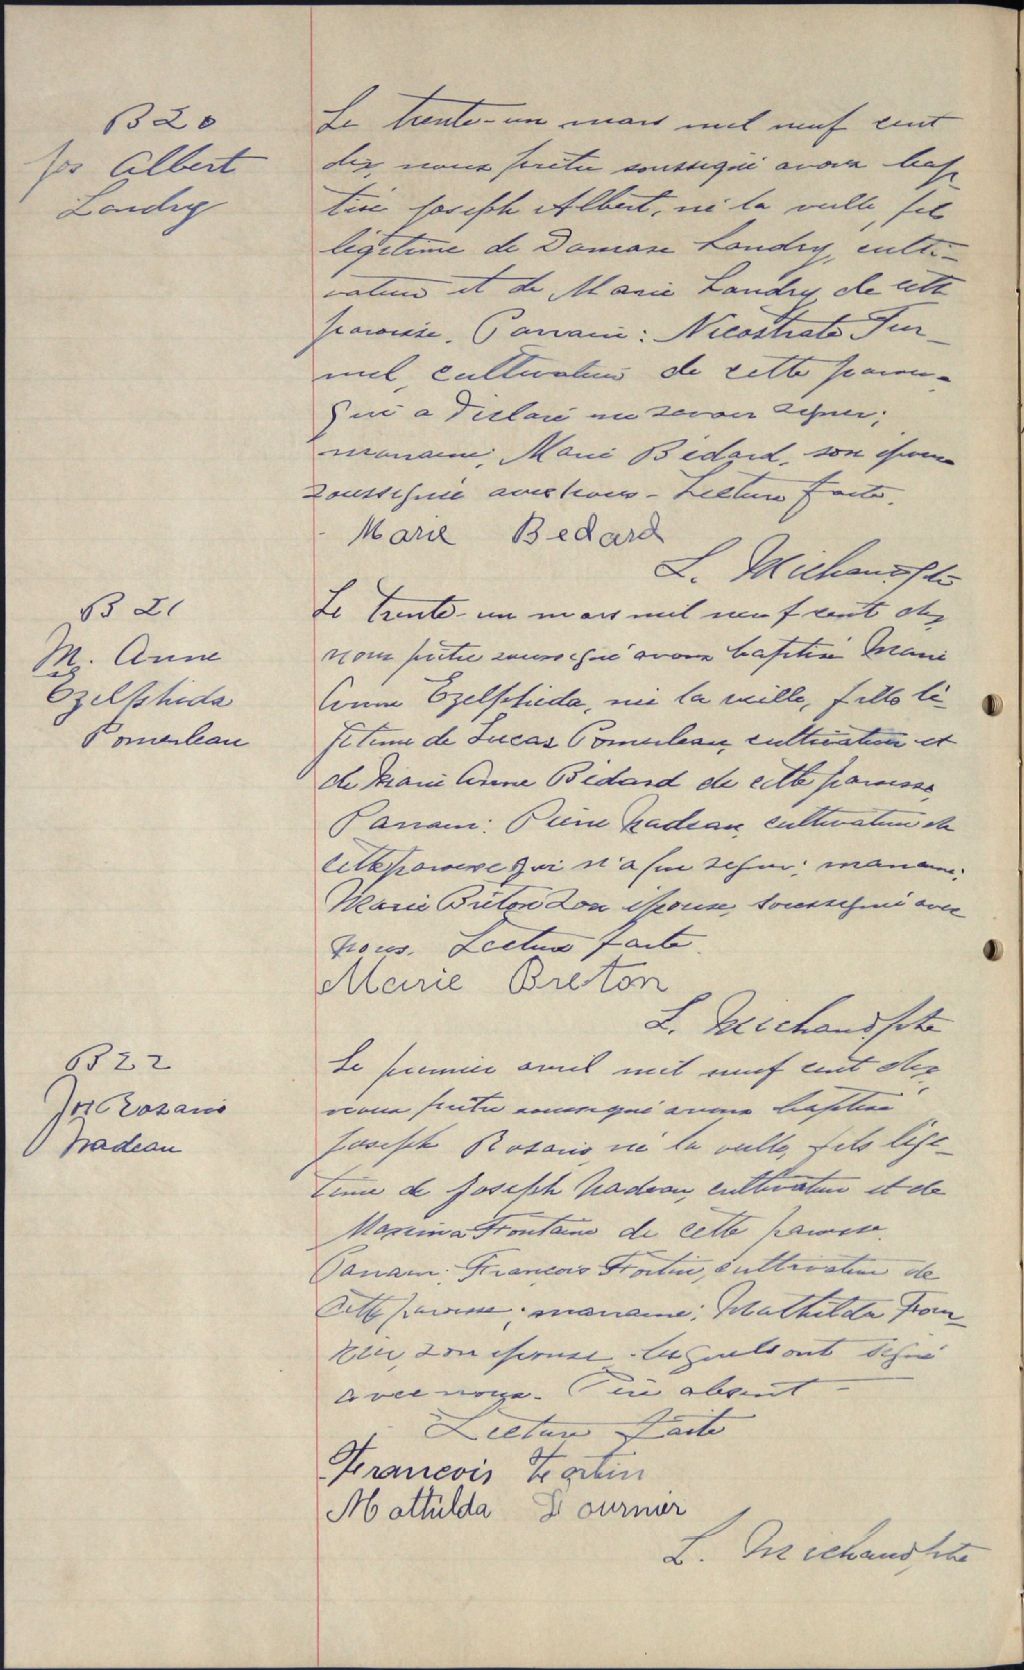 B 20
Jos Albert
Landry
Le trente-un mars mil neuf cent
dix, nous prêtre soussigné avons bap
tisé Joseph Albert, né la veille, fils
légitime de Damase Landry, culti-
vateur et de Marie Landry de cette
paroisse. Parrain: Nicostrate Tur-
mel, cultivateur de cette paroisse
qui a déclaré ne savoir signer;
marraine, Marie Bédard, son épouse
soussignée avec nous - Lecture faite.
Marie Bedard
L. Michaud ptre
B 21
M. Anne
Ezelphida
Pomerleau
Le trente-un mars mil neuf cent dix,
nous prêtre soussigné avons baptisé Marie
Anne Ezelphida, née la veille, fille lé-
gitime de Lucas Pomerleau, cultivateur et
de Marie Anne Bédard de cette paroisse,
Parrain: Pierre Nadeau, cultivateur de
cette paroisse qui n'a pu signer; marraine:
Marie Breton son épouse, soussignée avec
nous. Lecture faite.
Marie Breton
L. Michaud ptre
B 22
Jos Rosario
Nadeau
Le premier avril mil neuf cent dix,
nous prêtre soussigné avons baptisé
Joseph Rosario, né la veille, fils légi-
time de Joseph Nadeau, cultivateur et de
Maxima Fontaine de cette paroisse.
Parrain: François Fortin, cultivateur de
cette paroisse; marraine: Mathilda Four-
nier, son épouse lesquels ont signé
avec nous. Père absent -
Lecture faite
Francois Fortin
Mathilda Fournier
L. Michaud ptre